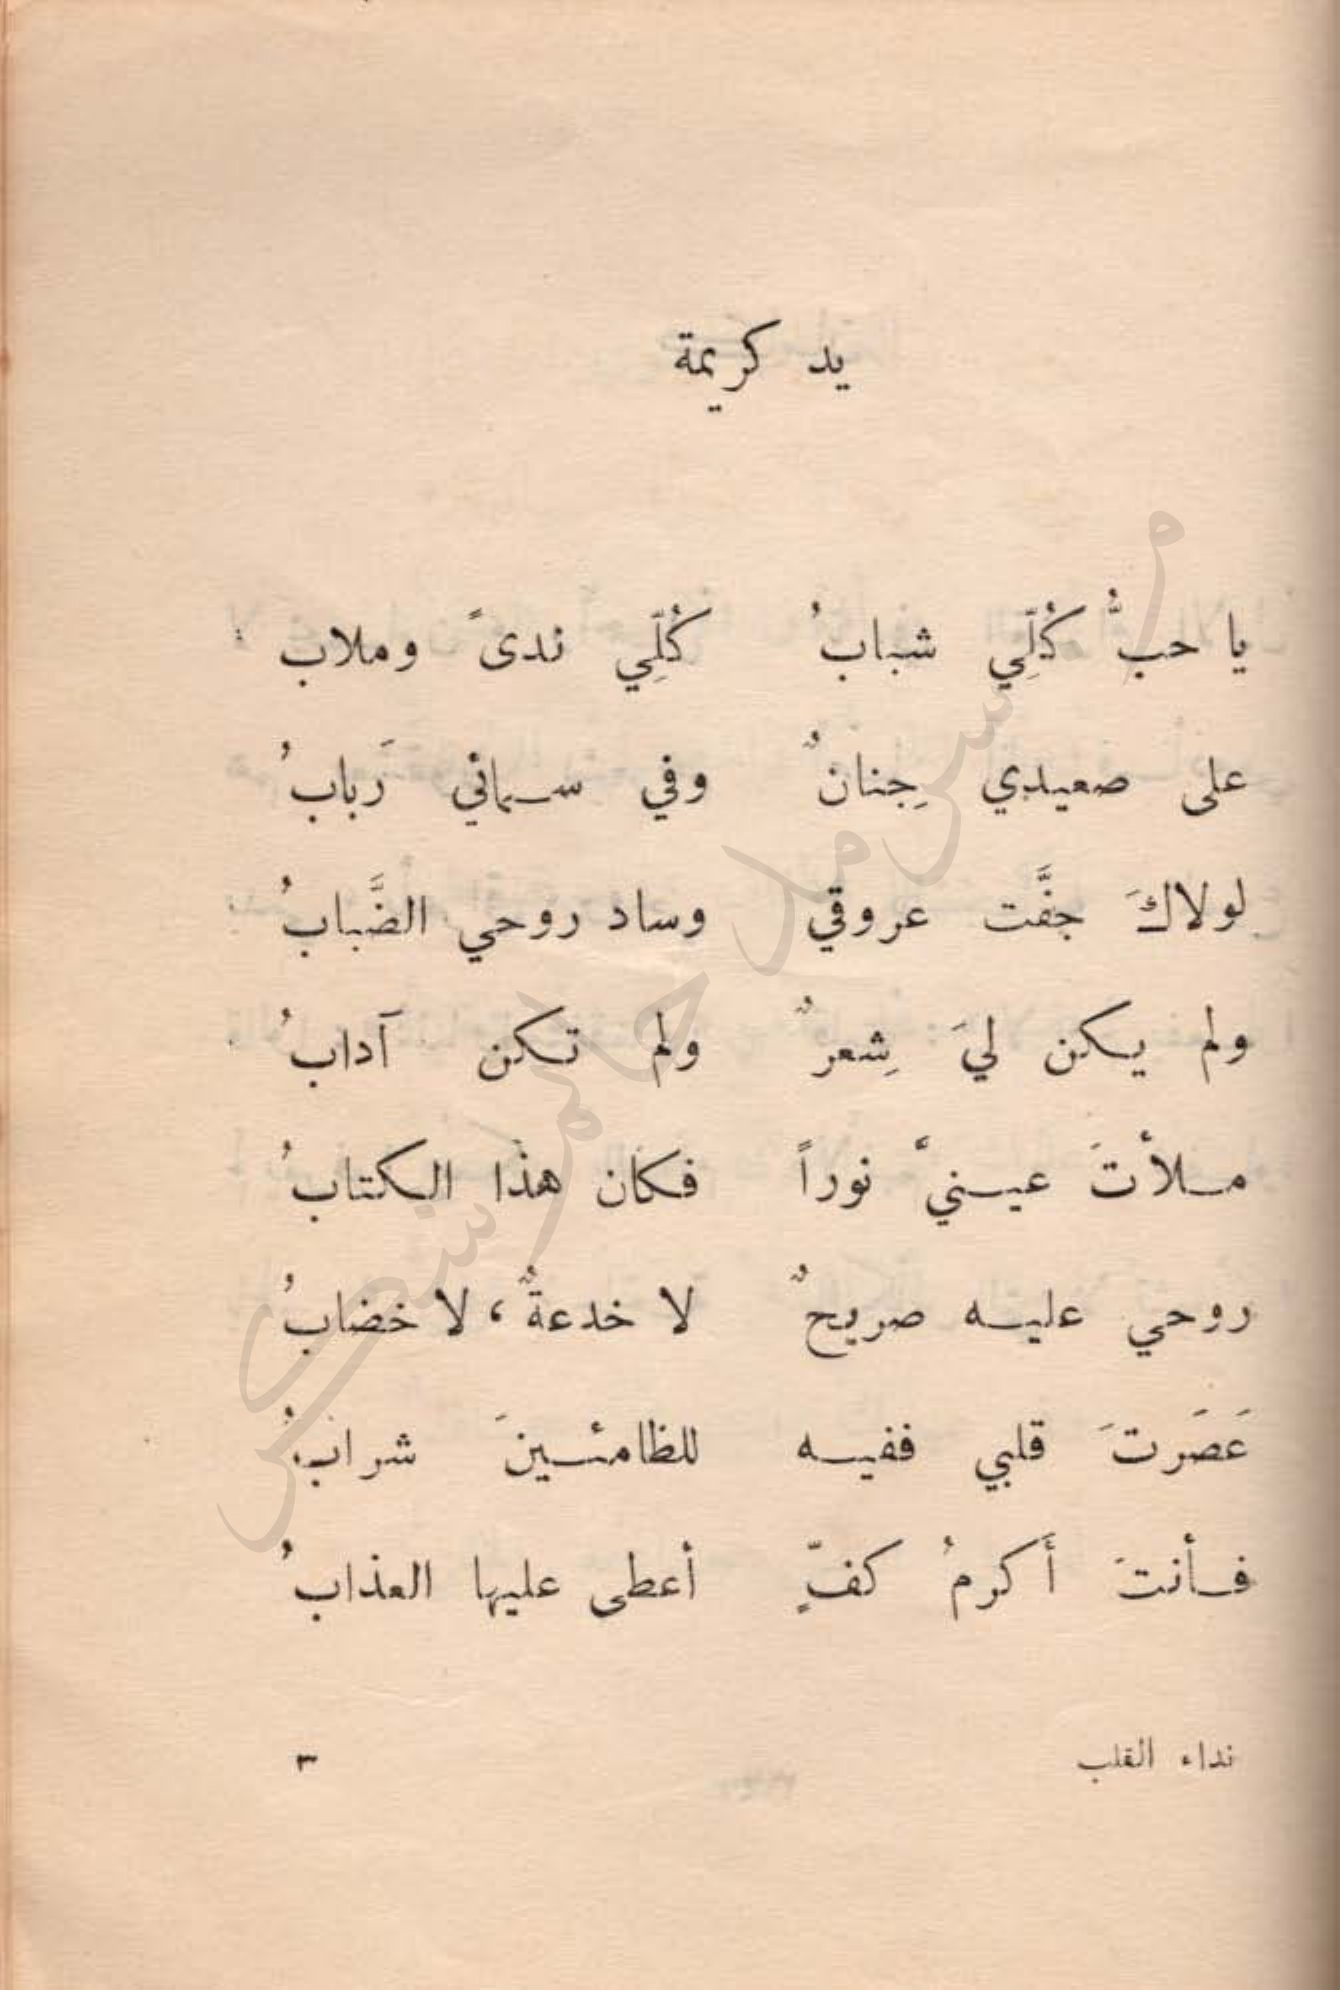 يد كريمة
يا حبُّ كُلِّي شبابُ كُلِّي ندىً وملاب
على صعيدي جِنانٌ وفي سمائي رَبابُ
لولاكَ جفَّت عروقي وساد روحي الضَّبابُ
ولم يكن ليَ شِعرٌ ولم تكن آدابُ
ملأتَ عينيَّ نوراً فكان هذا الكتابُ
روحي عليه صريحٌ لا خدعةٌ، لا خضابُ
عَصَرتَ قلبي ففيه للظامئينَ شرابُ
فأنتَ أَكرمُ كفٍّ أعطى عليها العذابُ
نداء القلب ٣